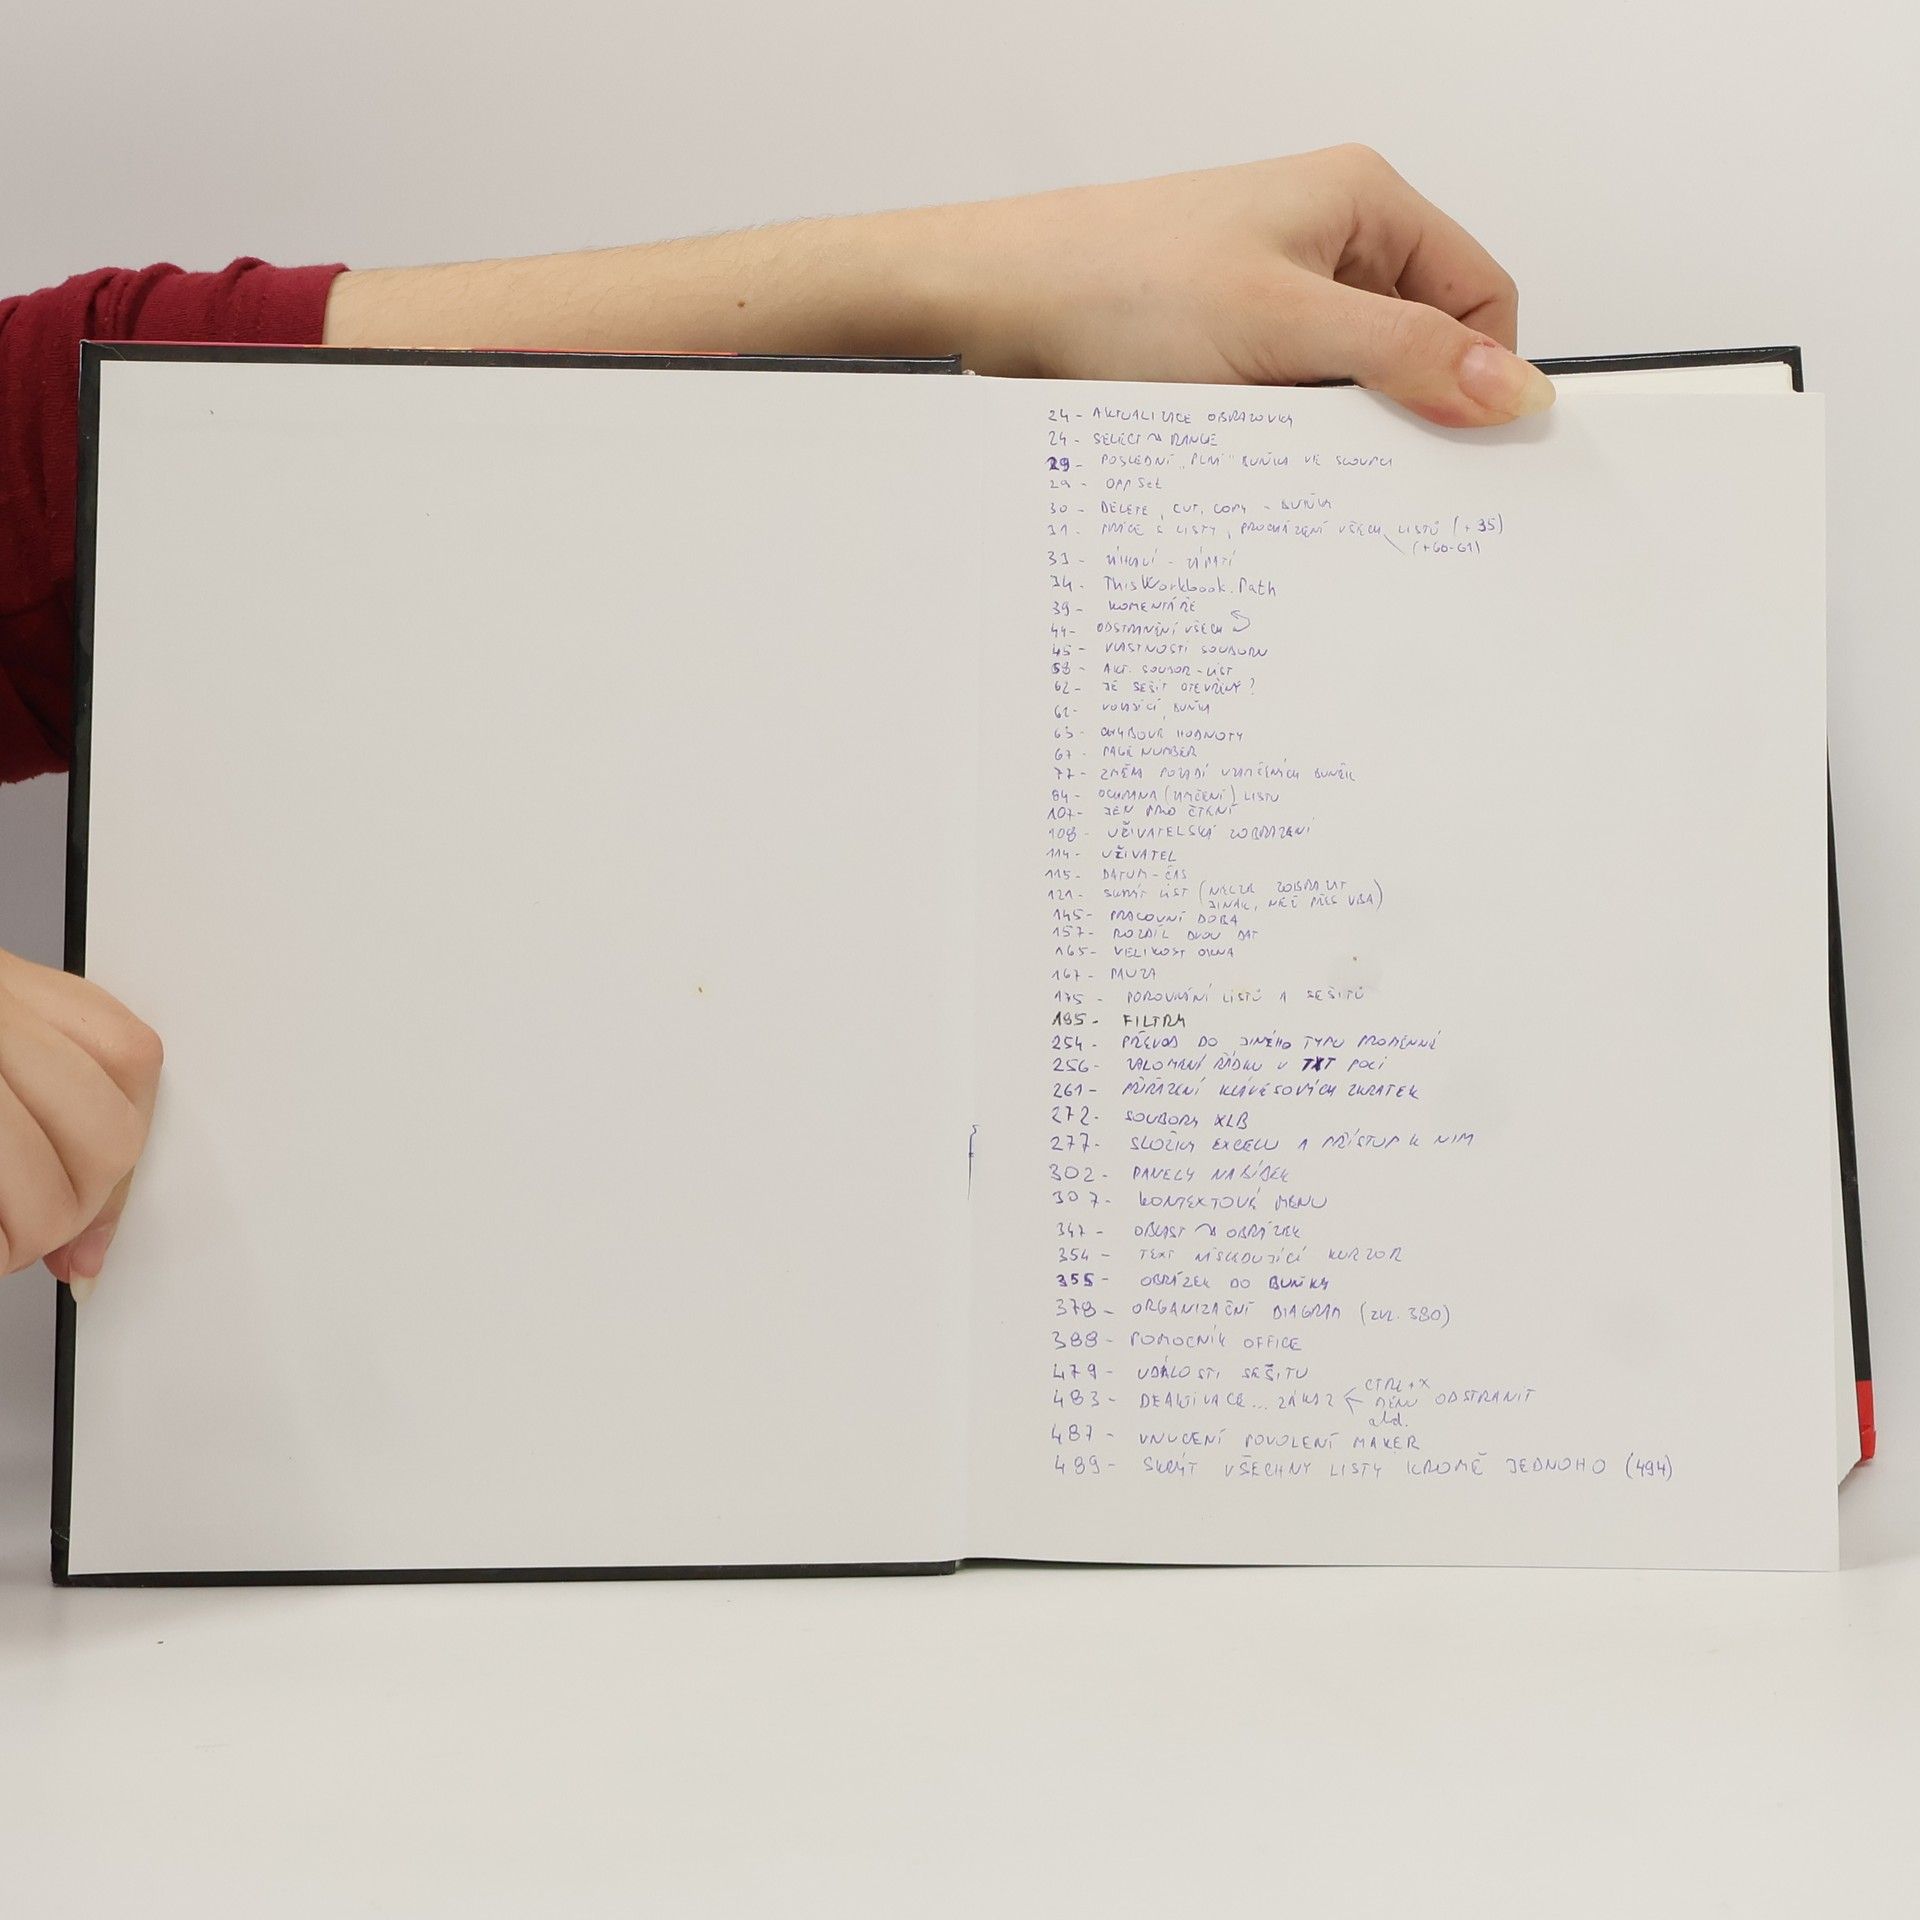 24 - AKTUALIZACE OBRAZOVKY
24 - SELECT → RANGE
29 - POSLEDNÍ „PLNÁ" BUŇKA VE SLOUPCI
29 - OFFSET
30 - DELETE, CUT, COPY - BUŇKA
31 - PRÁCE S LISTY, PROCHÁZENÍ VŠECH LISTŮ (+35)
(+60-61)
33 - ZÁHLAVÍ - ZÁPATÍ
34 - ThisWorkbook.Path
39 - KOMENTÁŘE
44 - ODSTRANĚNÍ VŠECH
45 - VLASTNOSTI SOUBORU
58 - AKT. SOUBOR - LIST
62 - JE SEŠIT OTEVŘENÝ?
62 - VOLAJÍCÍ BUŇKA
63 - CHYBOVÉ HODNOTY
67 - PAGE NUMBER
77 - ZMĚNA POŘADÍ UZAMČENÝCH BUNĚK
84 - OCHRANA (ZAMČENÍ) LISTU
107 - JEN PRO ČTENÍ
108 - UŽIVATELSKÁ ZOBRAZENÍ
114 - UŽIVATEL
115 - DATUM - ČAS
121 - SKRÝT LIST (NELZE ZOBRAZIT
JINAK, NEŽ PŘES VBA)
145 - PRACOVNÍ DOBA
157 - ROZDÍL DVOU DAT
165 - VELIKOST OKNA
167 - PAUZA
175 - POROVNÁNÍ LISTŮ A SEŠITŮ
195 - FILTRY
254 - PŘEVOD DO JINÉHO TYPU PROMĚNNÉ
256 - ZALOMENÍ ŘÁDKU V TXT POLI
261 - PŘIŘAZENÍ KLÁVESOVÝCH ZKRATEK
272 - SOUBORY XLB
277 - SLOŽKY EXCELU A PŘÍSTUP K NIM
302 - PANELY NABÍDEK
307 - KONTEXTOVÁ MENU
347 - OBLAST → OBRÁZEK
354 - TEXT NÁSLEDUJÍCÍ KURZOR
355 - OBRÁZEK DO BUŇKY
378 - ORGANIZAČNÍ DIAGRAM (zvl. 380)
388 - POMOCNÍK OFFICE
479 - UDÁLOSTI SEŠITU
483 - DEAKTIVACE... ZÁKAZ ← CTRL+X
MENU ODSTRANIT
atd.
487 - VNUCENÍ POVOLENÍ MAKER
489 - SKRÝT VŠECHNY LISTY KROMĚ JEDNOHO (494)